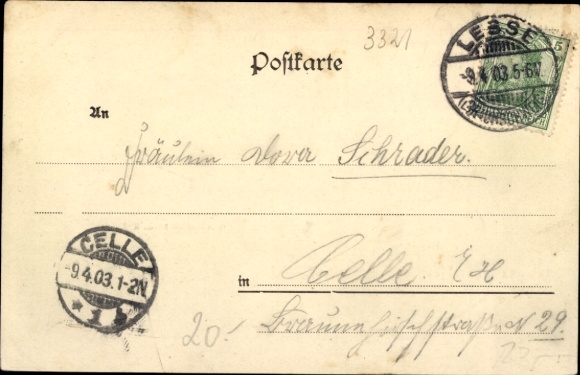 3321
Postkarte
LESSE
-9.4.03.5-6N.
(BRAUNSCHWEIG)
5
An
Fräulein Dora Schrader.
CELLE
-9.4.03.1-2N.
* 1 b
in Celle
20.- Braunhirschstraße N 29.